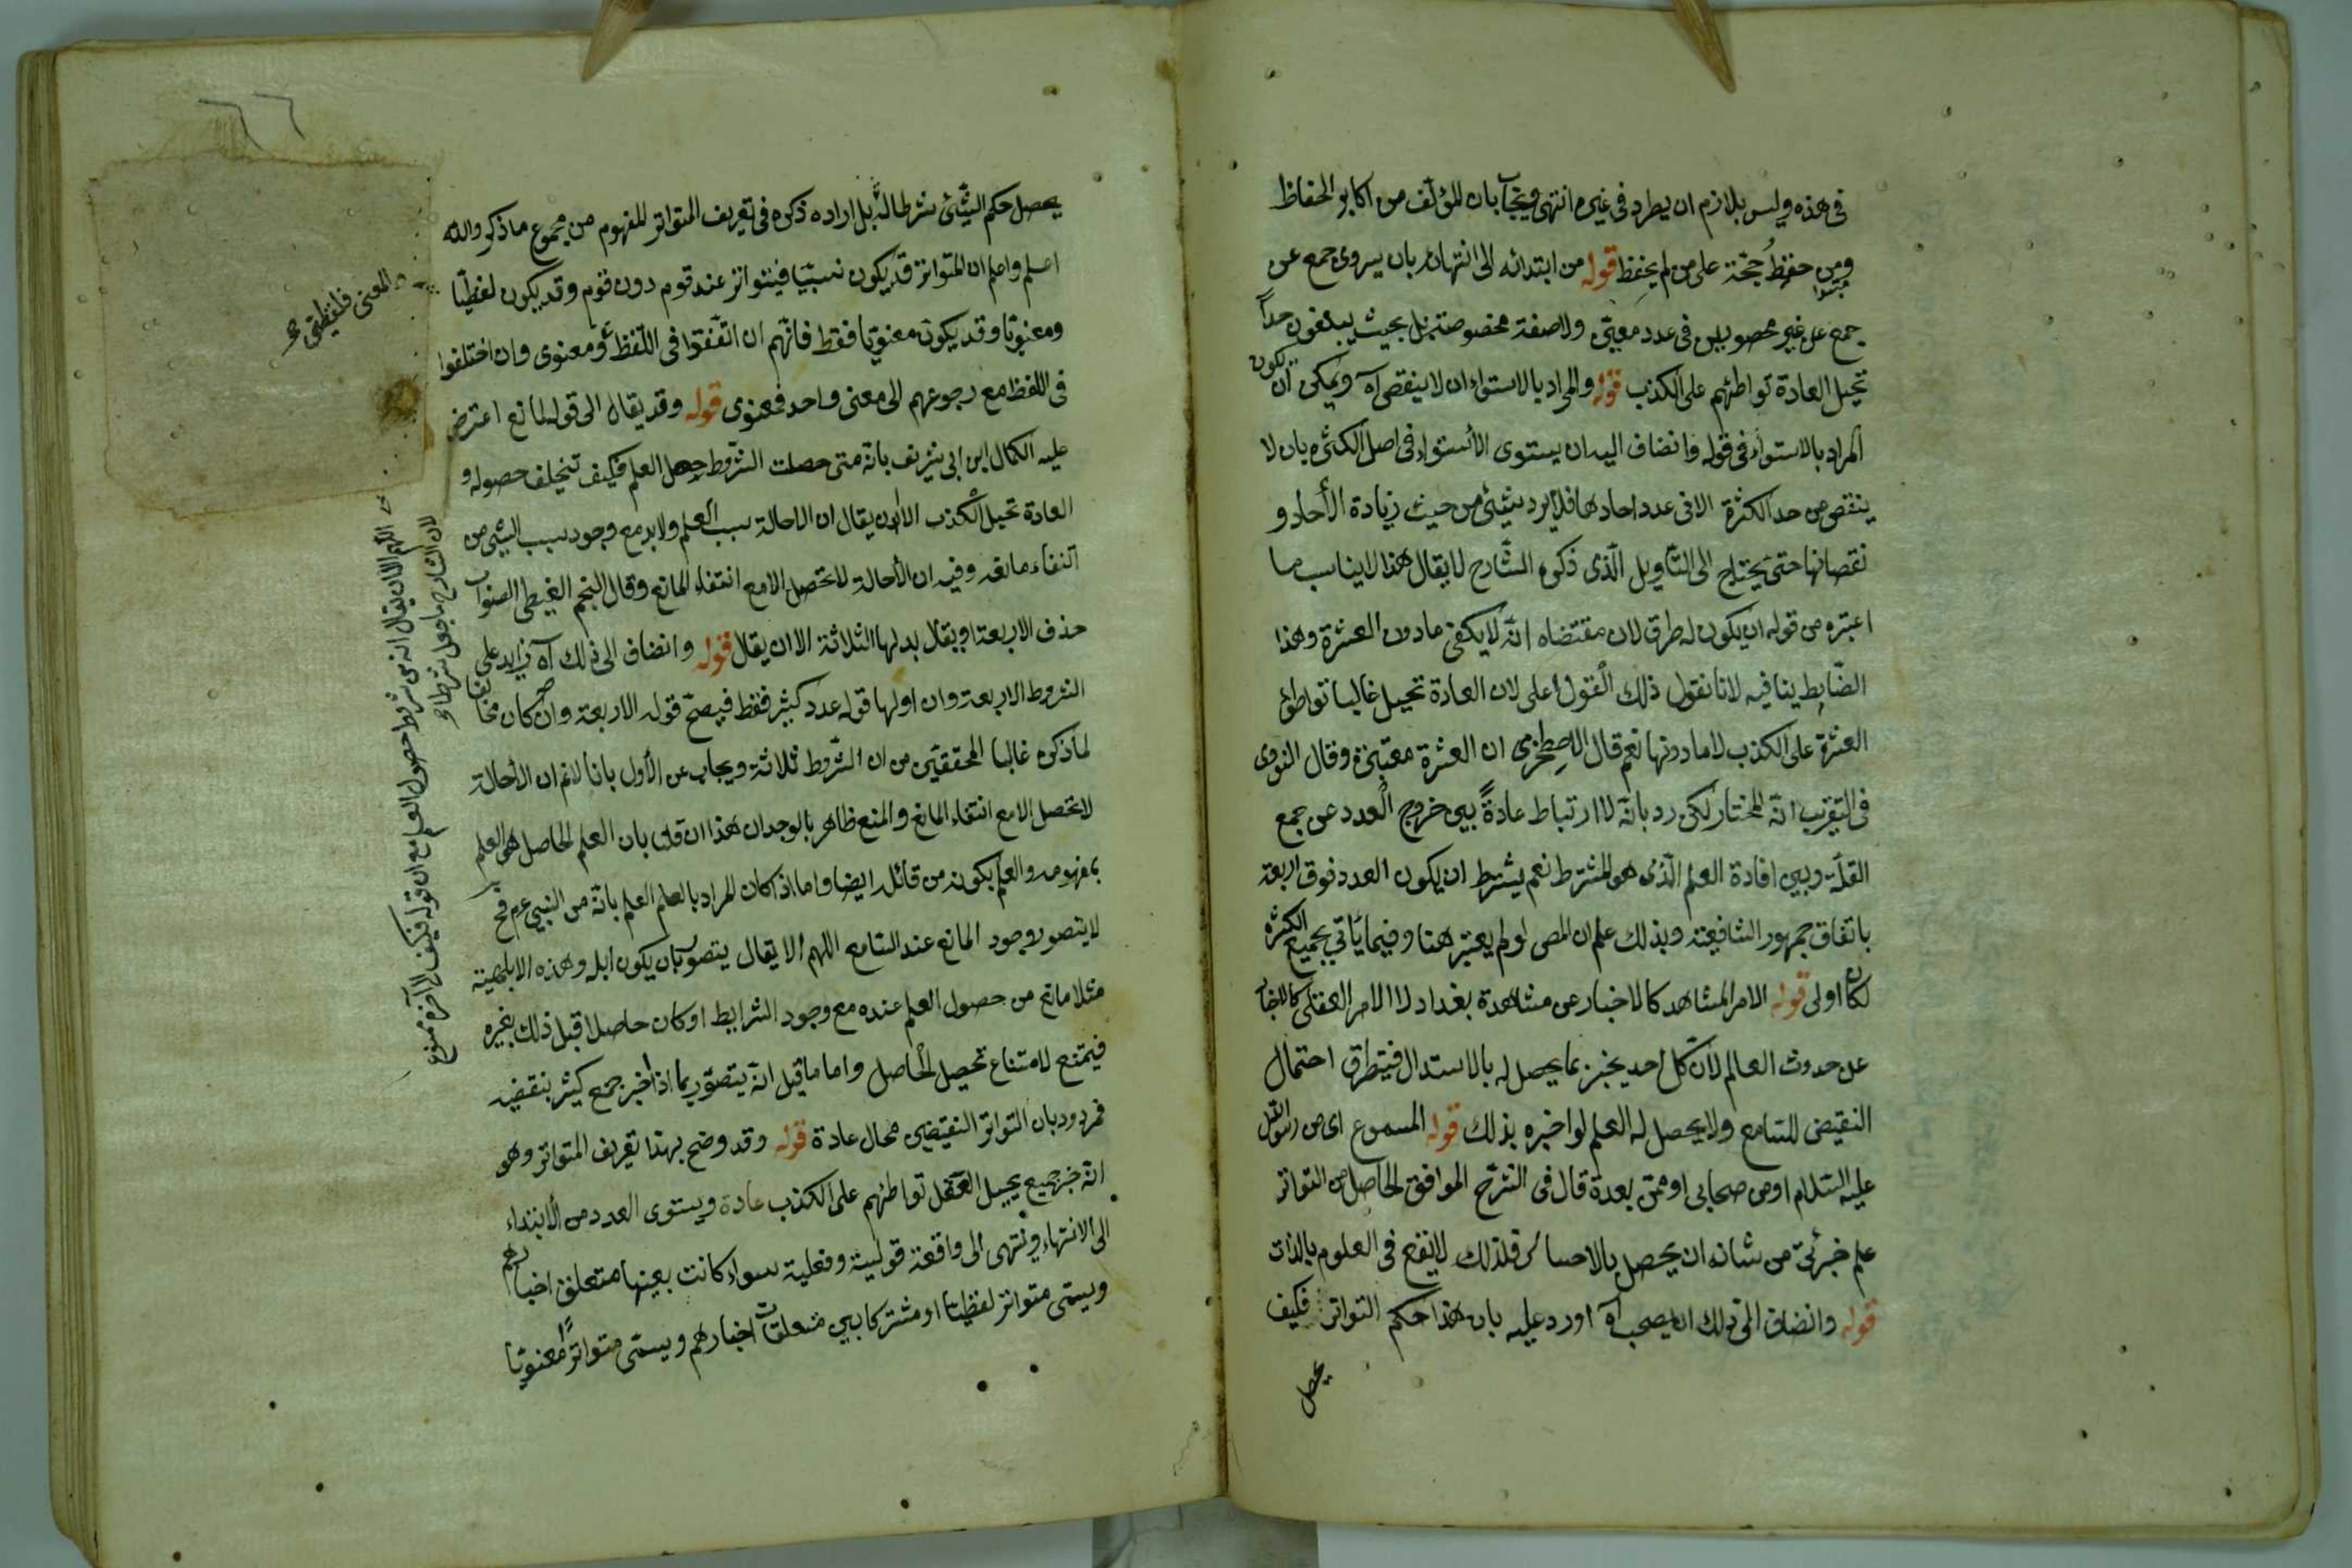 في هذه وليس بلازم ان يطرد في غيره انتهى ويجاب بان المؤلف من اكابر الحفاظ
ومن حفظ حجّة على من لم يحفظ قوله من ابتدائه الى انتهائه بان يروى جمع عن
جمع عن غير محصورين في عدد معيّن ولا صفة مخصوصة بل بحيث يبلغون حداً
تحيل العادة تواطئهم على الكذب قوله والمراد بالاستواء ان لا ينقص آه ويمكن ان يكون
المراد بالاستواء في قوله وانضاف اليه ان يستوى الأستواء في اصل الكثرة بان لا
ينقص من حد الكثرة الا في عدد احادها فلا يرد شيئ من حيث زيادة الأحاد و
نقصانها حتى يحتاج الى التأويل الّذى ذكره الشّارح لا يقال هذا لا يناسب ما
اعتبره من قوله ان يكون له طرق لان مقتضاه انّه لا يكفى مادون العشرة وهذا
الضّابط ينافيه لانا نقول ذلك القول اعلى لان العادة تحيل غالبا تواطؤ
العشرة على الكذب لا مادونها نعم قال الاصطخرى ان العشرة معتبرة وقال النووى
في التقريب انّه المختار لكن رد بانّه لا ارتباط عادةً بين خروج العدد عن جمع
القلّة وبين افادة العلم الّذى هو المشترط نعم يشترط ان يكون العدد فوق اربعة
باتفاق جمهور الشافعية وبذلك علم ان المص لو لم يعتبر هنا وفيما يأتى بجميع الكثرة
لكان اولى قوله الامر المشاهد كالاخبار عن مشاهدة بغداد لا الامر العقلى كالاخبار
عن حدوث العالم لأن كل احد يخبر عما يحصل له بالاستدلال فيتطرق احتمال
النقيض للسّامع ولا يحصل له العلم لو اخبره بذلك قوله المسموع اى من رسول الله
عليه السّلام او من صحابى او ممّن بعده قال في الشّرح الموافق الحاصل من التواتر
علم جزئىّ من شانه ان يحصل بالاحساس فلذلك لا يقع في العلوم بالذات
قوله وانضاف الى ذلك ان يصحب آه اورد عليه بان هذا حكم التواتر فكيف
يحصل
يحصل حكم الشّيئ شرطا له بل اراده ذكره في تعريف المتواتر المفهوم من مجموع ما ذكر والله
اعلم واعلم ان المتواتر قد يكون نسبيّا فيتواتر عند قوم دون قوم وقد يكون لفظيّا
ومعنويّا وقد يكون معنويّا فقط فانّهم ان اتّفقوا في اللّفظ و معنوى وان اختلفوا
في اللفظ مع رجوعهم الى معنى واحد فمعنوى قوله وقد يقال الى قوله لمانع اعترض
عليه الكمال ابن ابى شريف بانّه متى حصلت الشّروط حصل العلم فكيف تخلف حصوله و
العادة تحيل الكذب الا ان يقال ان الاحالة سبب العلم ولا بد مع وجود سبب الشّيئ من
انتفاء مانعه وفيه ان الأحالة لا تحصل الا مع انتفاء المانع وقال النجم الغيطى الصّواب
حذف الاربعة او يقال بدلها الثلاثة الا ان يقال قوله وانضاف الى ذلك آه زايد على
الشروط الاربعة وان اولها قوله عدد كثير فقط فيصحّ قوله الاربعة وان كان مخالفا
لما ذكره غالبا المحققين من ان الشّروط ثلاثة ويجاب عن الأول بانا لا نم ان الأحالة
لا تحصل الا مع انتفاء المانع والمنع ظاهر بالوجدان هذا ان قلنا بان العلم الحاصل هو العلم
بمفهومه والعلم بكونه من قائله ايضا واما اذا كان المراد بالعلم العلم بانّه من النّبى عم فح
لا يتصور وجود المانع عند السّامع اللهم الا يقال يتصور بان يكون ابله وهذه الابلهيّة
مثلا مانع من حصول العلم عنده مع وجود الشرايط او كان حاصلا قبل ذلك بغيره
فيمتنع لامتناع تحصيل الحاصل واما ما قيل انّه يتصوّر بما اذا اخبر جمع كثير بنقيضه
فمردود بان التواتر النقيضين محال عادة قوله وقد وضح بهذا تعريف المتواتر وهو
انّه خبر جميع يحيل العقل تواطئهم على الكذب عادة ويستوى العدد من الأبتداء
الى الانتهاء وينتهى الى واقعة قوليّة وفعلية سواء كانت بعينها متعلق اخبارهم
ويسمّى متواترا لفظيّا او مشتركا بين متعلقات اخبارهم ويسمّى متواتراً معنويّا
المعنى فلفظى صح
لان الشارح ما جعل شرطا صح
اللّهم الا ان يقال انه من شروط حصول العلم مع ان قوله فكيف الى آخره ممنوع
٦٦